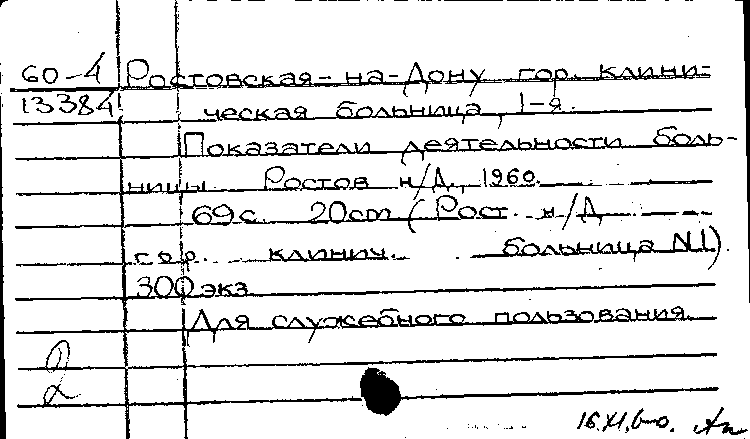 60-4 Ростовская-на-Дону гор. клини-
13384 ческая больница, 1-я.
Показатели деятельности боль-
ницы. Ростов н/Д., 1960.
69 с. 20 cm (Рост. н/Д
гор. клинич. больница N1)
300 экз
Для служебного пользования.
2